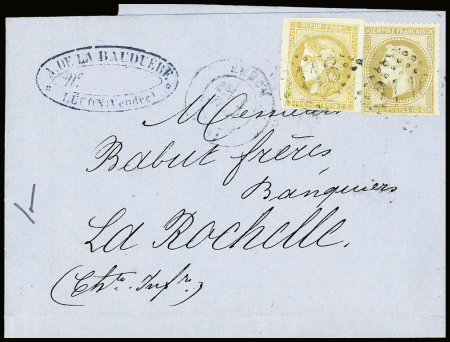 A. DE LA BAUDUÈRE
LUÇON (Vendée)
REPUB. FRANC.
EMPIRE FRANÇAIS
Messieurs
Babut frères
Banquiers
La Rochelle.
(Chte. Infre.)